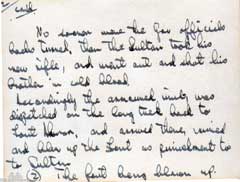 No sooner were the Gov officials
backs turned, than the Sultan took his
new rifle, and went out and shot his
brother in cold blood
Accordingly the armoured, was
dispatched on the long trek back to
Fort, and arrived there, mined
and blew up the Fort as punishment to
to Sultan
(2) The fort being blown up.